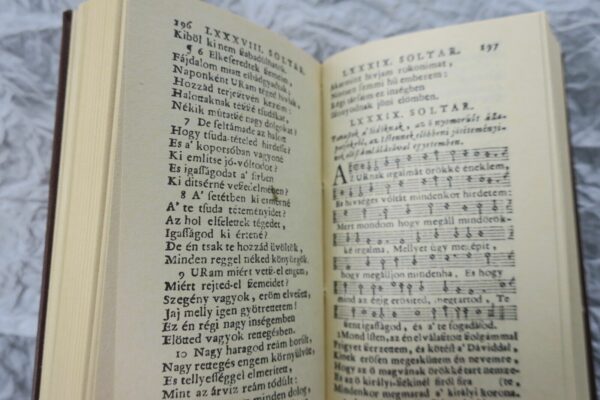 196 LXXXVIII. SOLTÁR.
Kiböl ki nem ſzabadúlhatok.
¶ 6 Elkeſeredtek ſzemeim,
Fájdalom miatt elhádgyadtak,
Naponként URam téged hívlak,
Hozzád terjeſztvén kezeim:
Halottaknak téſzſzé tſudákat,
Nékik mutatſzé nagy dolgokat?
7 De feltámadé az halott
Hogy tſuda-tételed hirdeſſe?
Es a' koporsóban vagyoné
Ki említse jó-vóltodat?
Es igaſságodat a' ſírben
Ki ditsérné veſzedelmében?
8 A' ſetétben ki eſmérné
A' te tſuda téteményidet?
Az hol elfelettek tégedet,
Igaſságod ki értené?
De én tsak te hozzád üvöltök,
Minden reggel néked könyörgök.
9 URam miért vetſz-el engem,
Miért rejted-el ſzemeidet?
Szegény vagyok, eröm elveſzett,
Jaj melly igen gyötrettetem!
Ez én régi nagy inségemben
Elötted vagyok rettegésben.
10 Nagy haragod reám borúlt,
Nagy rettegés engem környülvött,
Es tellyeſséggel elmerített,
Mint az árvíz reám tódúlt:
minden dolog,
LXXXIX. SOLTAR. 197
hívjam rokonimat,
ſemmi hü emberem:
Régi társaim ez inségben
plni elömben.
LXXXIX. SOLTAR.
AZ URnak irgalmát örökké éneklem,
Es hívséges vóltát mindenkor hirdetem:
Mert mondom hogy megáll mindörök-
ké irgalma, Mellyet úgy meg-épít,
hogy megálljon mindenha, Es hogy
mind az égig erösíted, megtartod, Te
ſzent igaſságod, és a' te fogadásod.
Mond iſten, az én elválaſztott ſzolgámmal
Frigyet ſzerzettem, és kötést a' Dáviddal,
Kinek erösen megeskütem én nevemre,
Hogy az ö magvának örökké tart nemze-
Es az ö királyi-ſzékinél fíról fíra (te,
Mindenkor megmarad a' királyi korona.